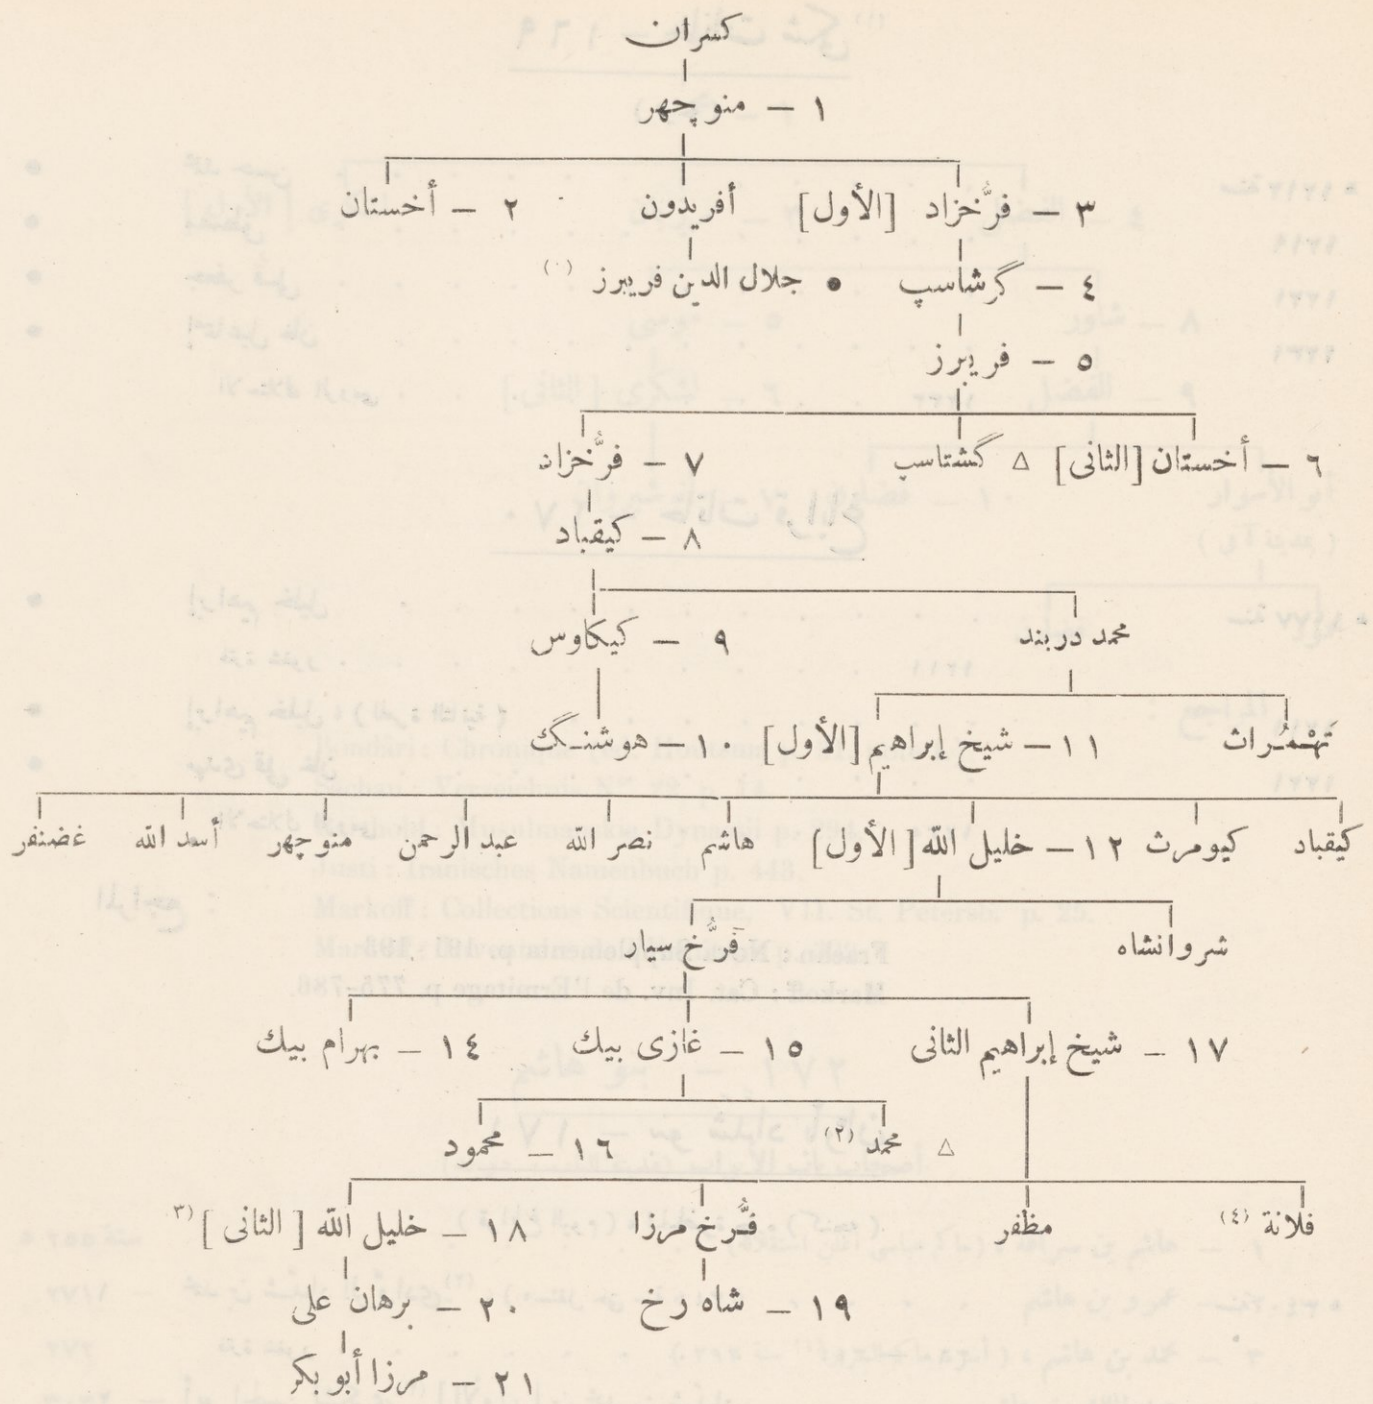 كسران
١ – منوچهر
٣ – فرُّخزاد [الأول] أفريدون ٢ – أخستان
٤ – گرشاسپ • جلال الدين فريبرز (١)
٥ – فريبرز
٦ – أخستان [الثانى] △ گشتاسب ٧ – فرُّخزاد
٨ – كيقباد
محمد دربند ٩ – كيكاوس
تَهْمُراث ١١ – شيخ إبراهيم [الأول] ١٠ – هوشنگ
كيقباد كيومرث ١٢ – خليل الله [الأول] هاشم نصر الله عبد الرحمن منوچهر أسد الله غضنفر
شروانشاه فَرُّخ سيار
١٧ – شيخ إبراهيم الثانى ١٥ – غازى بيك ١٤ – بهرام بيك
△ محمد (٢) ١٦ – محمود
فلانة (٤) مظفر فَرُّخ مرزا ١٨ – خليل الله [الثانى] (٣)
١٩ – شاه رخ ٢٠ – برهان على
٢١ – مرزا أبو بكر